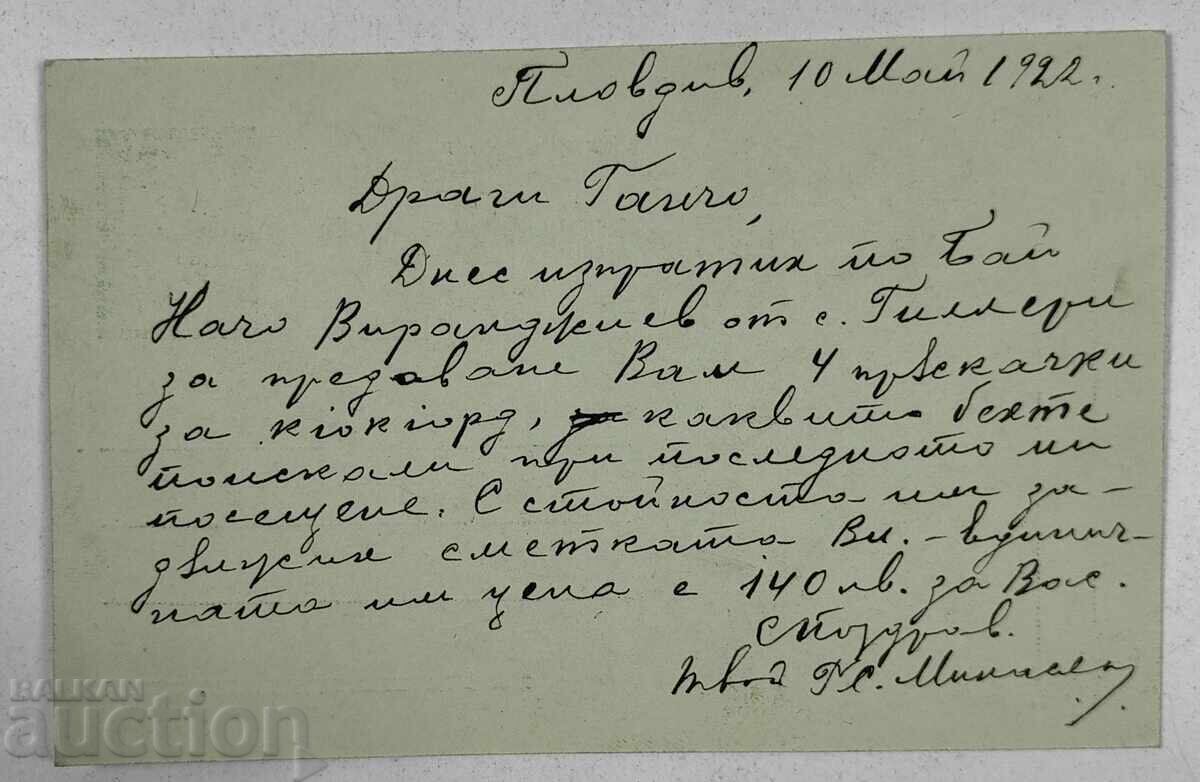 Пловдив, 10 Май 1922.
Драги Ганчо,
Днес изпратих по Бай
Начо Виранджиев от с. Гиллери
за предаване Вам 4 пръскачки
за кюкюрд, каквито бехте
поискали при последното ни
посещение. С стойността им за-
движих сметката Ви. - единич-
ната им цена е 140 лв. за Вас.
С поздрав.
твой
BALKAN
auction